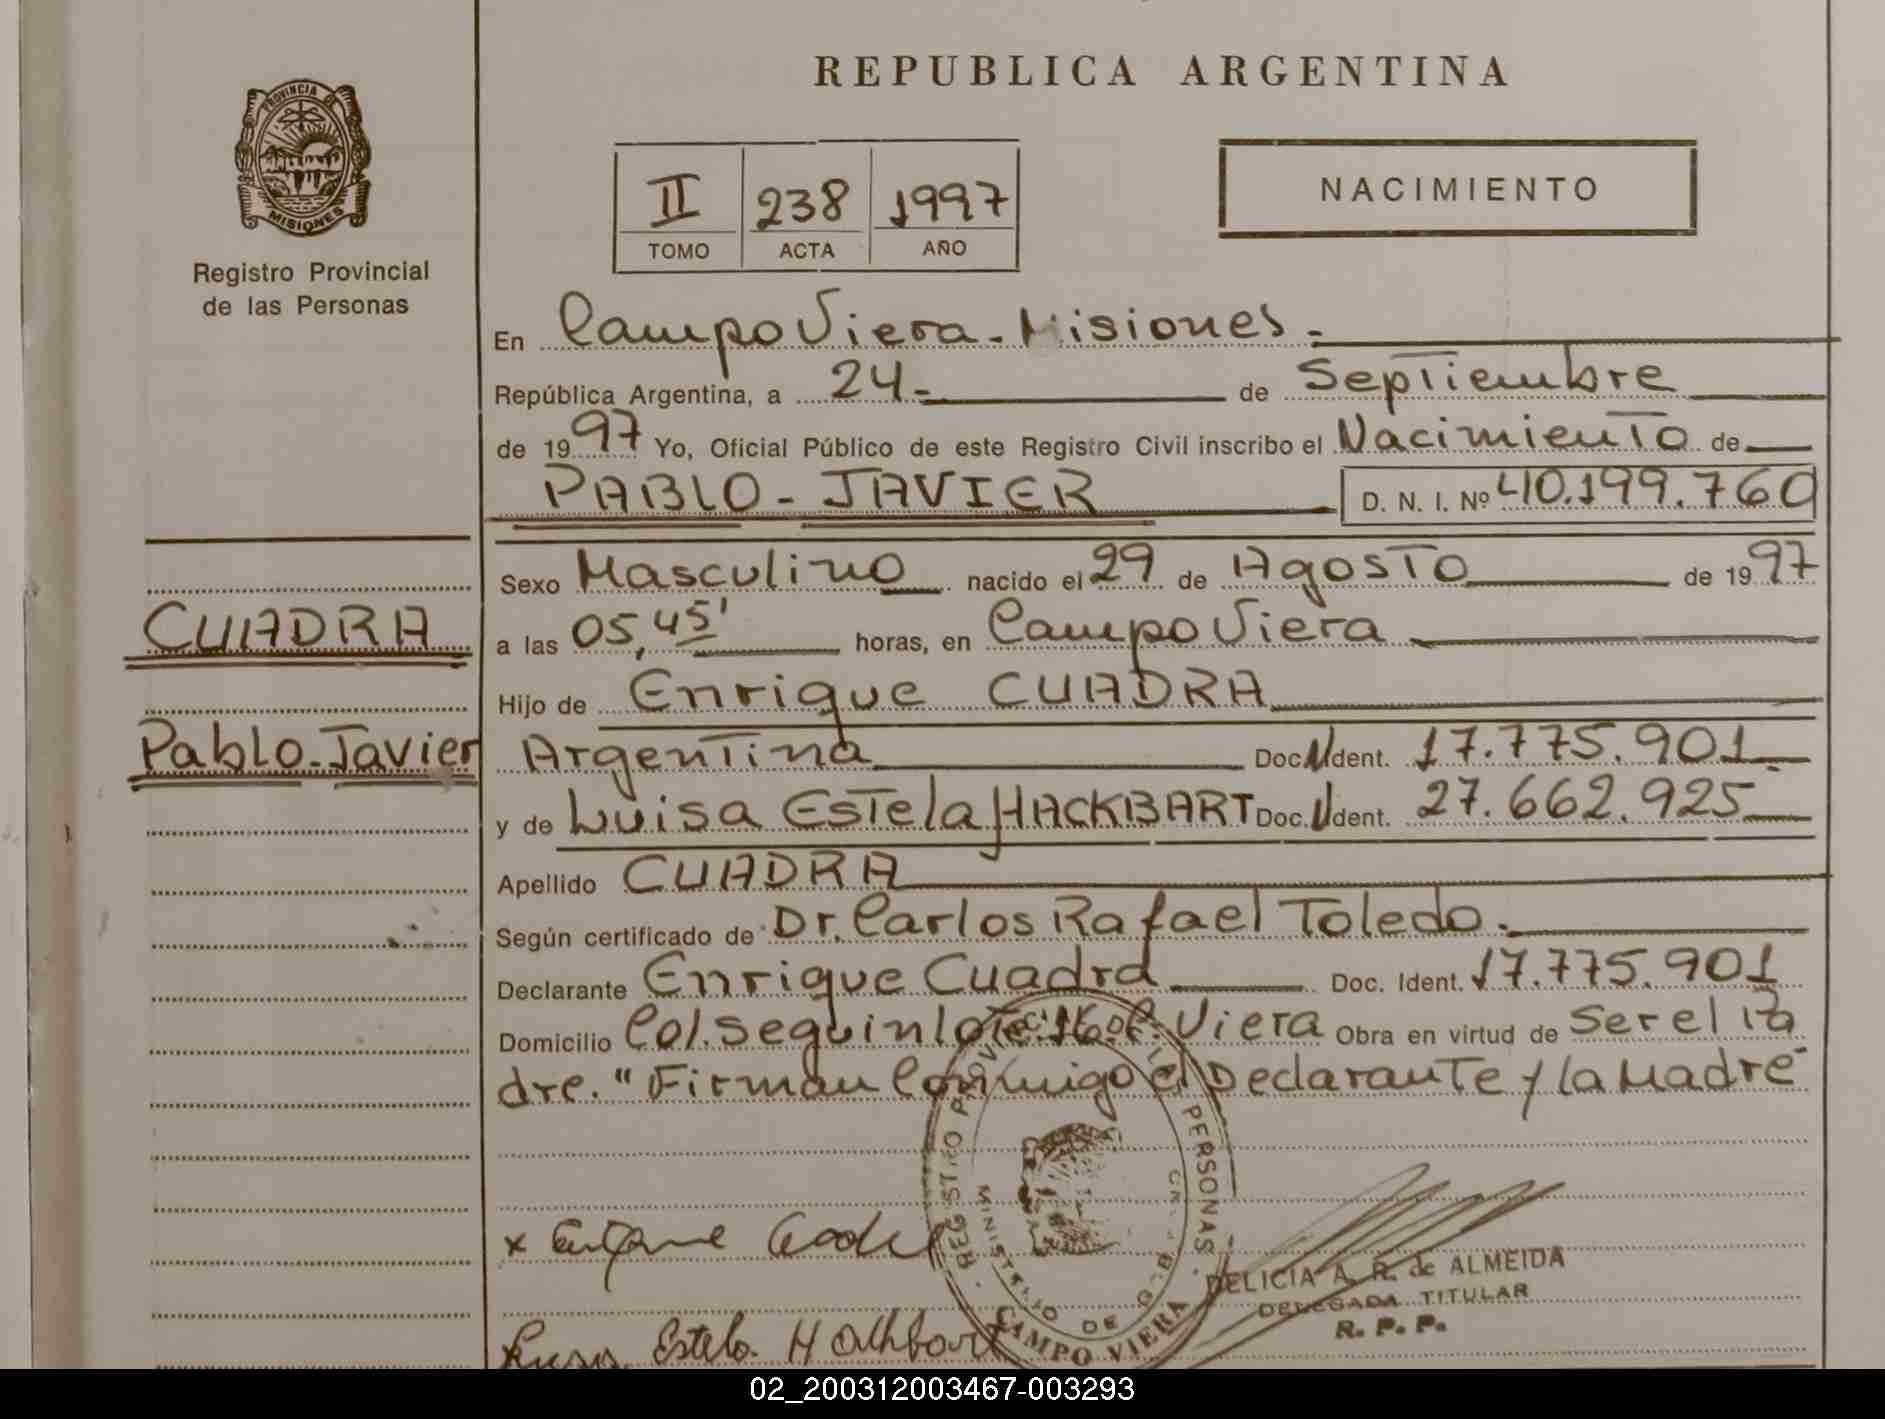 REPUBLICA ARGENTINA
PROVINCIA DE
MISIONES
Registro Provincial
de las Personas
II 238 1997
TOMO ACTA AÑO
NACIMIENTO
En Campo Viera - Misiones.
República Argentina, a 24 - de Septiembre
de 1997 Yo, Oficial Público de este Registro Civil inscribo el Nacimiento de
PABLO - JAVIER D. N. I. Nº 40.199.760
Sexo Masculino nacido el 29 de Agosto de 1997
CUADRA
a las 05,45' horas, en Campo Viera
Hijo de Enrique CUADRA
Pablo - Javier
Argentina Doc. Ident. 17.775.901
y de Luisa Estela HACKBART Doc. Ident. 27.662.925
Apellido CUADRA
Según certificado de Dr. Carlos Rafael Toledo.
Declarante Enrique Cuadra Doc. Ident. 17.775.901
Domicilio Col. Seguin lote 16. C. Viera Obra en virtud de Ser el Pa
dre. "Firman Conmigo el Declarante y la Madre"
REGISTRO PROVINCIAL DE LAS PERSONAS
MINISTERIO DE GOB
CAMPO VIERA
x Enrique Cuadra
DELICIA A. R. de ALMEIDA
DELEGADA TITULAR
R. P. P.
Luisa Estela Hackbart
02_200312003467-003293